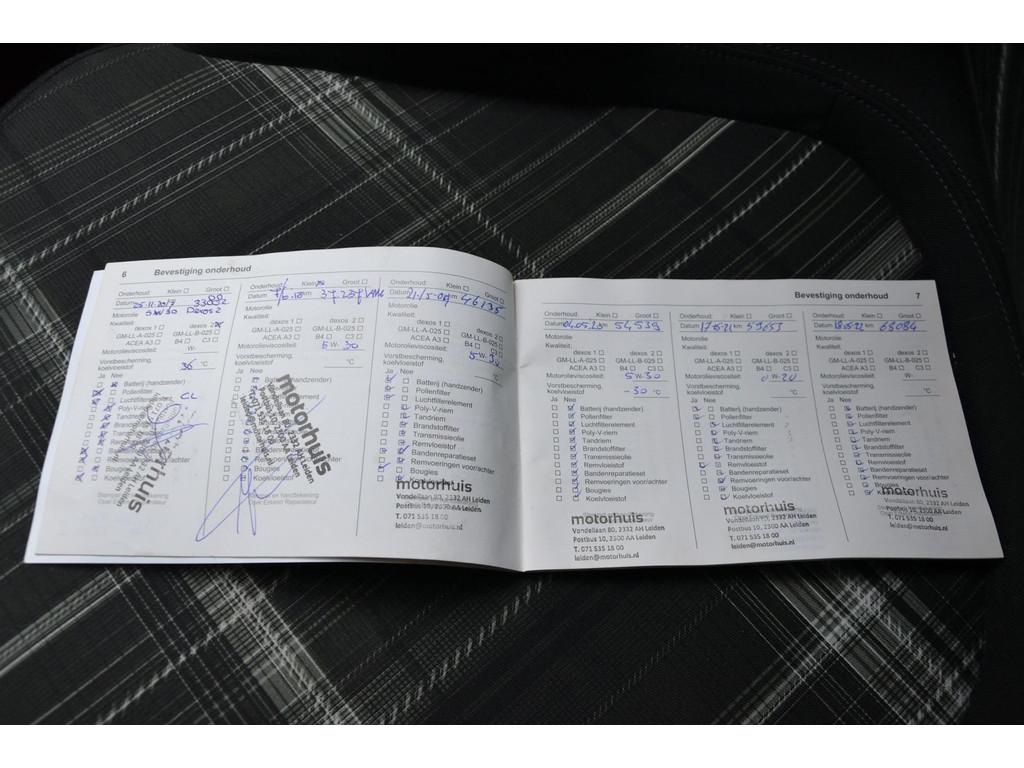 6 Bevestiging onderhoud
Onderhoud: Klein Groot
Datum 25.11.2017
5W30 Dexos2
Kwaliteit:
dexos 1 dexos 2
GM-LL-A-025 GM-LL-B-025
ACEA A3 B4 C3
Motorolieviscositeit: W-
Vorstbescherming,
koelvloeistof 36 °C
Ja Nee
Batterij (handzender)
Pollenfilter
Luchtfilterelement CL
Poly-V-riem
Onderhoud: Klein Groot
Datum km
Motorolie
Kwaliteit:
dexos 1 dexos 2
GM-LL-A-025 GM-LL-B-025
ACEA A3 B4 C3
Motorolieviscositeit: 5 W- 30
Vorstbescherming,
koelvloeistof °C
Ja Nee
Bougies
Koelvloeistof
motorhuis
Onderhoud: Klein Groot
Datum 46135
Motorolie
Kwaliteit:
dexos 1 dexos 2
GM-LL-A-025 GM-LL-B-025
ACEA A3 B4 C3
Motorolieviscositeit: 5 W- 30
Vorstbescherming,
koelvloeistof °C
Ja Nee
Batterij (handzender)
Pollenfilter
Luchtfilterelement
Poly-V-riem
Tandriem
Brandstoffilter
Transmissieolie
Remvloeistof
Bandenreparatieset
Remvoeringen voor/achter
Bougies
motorhuis
Vondellaan 80, 2332 AH Leiden
Postbus 10, 2300 AA Leiden
T. 071 535 18 00
leiden@motorhuis.nl
Bevestiging onderhoud 7
Onderhoud: Klein Groot
Datum 04.05.20 km 54,539
Motorolie
Kwaliteit:
dexos 1 dexos 2
GM-LL-A-025 GM-LL-B-025
ACEA A3 B4 C3
Motorolieviscositeit: 5 W- 30
Vorstbescherming,
koelvloeistof -30 °C
Ja Nee
Batterij (handzender)
Pollenfilter
Luchtfilterelement
Poly-V-riem
Tandriem
Brandstoffilter
Transmissieolie
Remvloeistof
Bandenreparatieset
Remvoeringen voor/achter
Bougies
Koelvloeistof
motorhuis
Vondellaan 80, 2332 AH Leiden
Postbus 10, 2300 AA Leiden
T. 071 535 18 00
leiden@motorhuis.nl
Onderhoud: Klein Groot
Datum km 59653
Motorolie
Kwaliteit:
dexos 1 dexos 2
GM-LL-A-025 GM-LL-B-025
ACEA A3 B4 C3
Motorolieviscositeit: 0 W- 20
Vorstbescherming,
koelvloeistof °C
Ja Nee
Batterij (handzender)
Pollenfilter
Luchtfilterelement
Poly-V-riem
Tandriem
Brandstoffilter
Transmissieolie
Remvloeistof
Bandenreparatieset
Remvoeringen voor/achter
Bougies
Koelvloeistof
motorhuis
Vondellaan 80, 2332 AH Leiden
Postbus 10, 2300 AA Leiden
T. 071 535 18 00
leiden@motorhuis.nl
Onderhoud: Klein Groot
Datum km 63084
Motorolie
Kwaliteit:
dexos 1 dexos 2
GM-LL-A-025 GM-LL-B-025
ACEA A3 B4 C3
Motorolieviscositeit: W-
Vorstbescherming,
koelvloeistof °C
Ja Nee
Batterij (handzender)
Pollenfilter
Luchtfilterelement
Poly-V-riem
Tandriem
Brandstoffilter
Transmissieolie
Remvloeistof
Bandenreparatieset
Remvoeringen voor/achter
Bougies
motorhuis
Vondellaan 80, 2332 AH Leiden
Postbus 10, 2300 AA Leiden
T. 071 535 18 00
leiden@motorhuis.nl